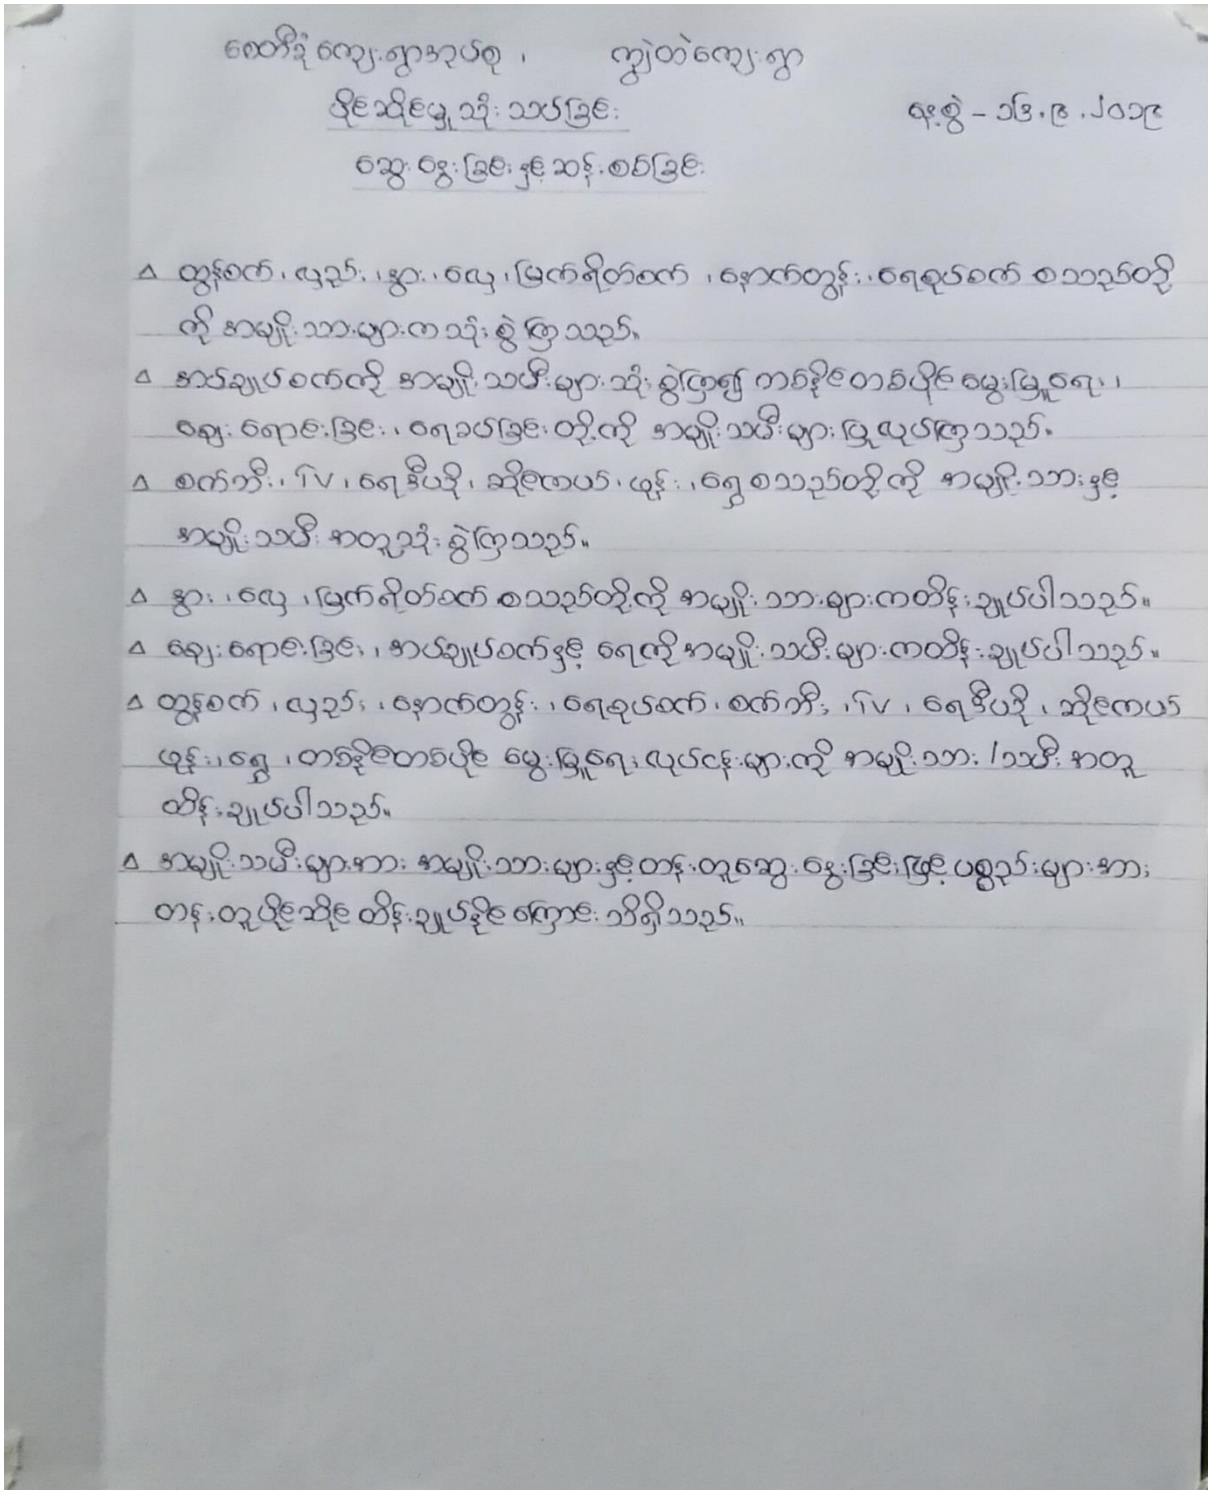 စေတီဒုံကျေးရွာအုပ်စု ၊ ကျွဲတဲကျေးရွာ
ပိုင်ဆိုင်မှု သုံးသပ်ခြင်း ရက်စွဲ - ၁၆.၉.၂၀၁၉
ဆွေးနွေးခြင်းနှင့် ဆန်းစစ်ခြင်း
△ ထွန်စက် ၊ လှည်း ၊ နွား ၊ လှေ ၊ မြက်ရိတ်စက် ၊ နောက်တွန်း ၊ ရေစုပ်စက် စသည်တို့
ကို အမျိုးသားများက သုံးစွဲကြသည်။
△ အပ်ချုပ်စက်ကို အမျိုးသမီးများ သုံးစွဲကြ၍ တစ်နိုင်တစ်ပိုင် မွေးမြူရေး ၊
ဈေးရောင်းခြင်း ၊ ရေခပ်ခြင်းတို့ကို အမျိုးသမီးများ ပြုလုပ်ကြသည်။
△ စက်ဘီး ၊ TV ၊ ရေဒီယို ၊ ဆိုင်ကယ် ၊ ဖုန်း ၊ ရွှေ စသည်တို့ကို အမျိုးသားနှင့်
အမျိုးသမီး အတူသုံးစွဲကြသည်။
△ နွား ၊ လှေ ၊ မြက်ရိတ်စက် စသည်တို့ကို အမျိုးသားများကထိန်းချုပ်ပါသည်။
△ ဈေးရောင်းခြင်း ၊ အပ်ချုပ်စက်နှင့် ရေကို အမျိုးသမီးများကထိန်းချုပ်ပါသည်။
△ ထွန်စက် ၊ လှည်း ၊ နောက်တွန်း ၊ ရေစုပ်စက် ၊ စက်ဘီး ၊ TV ၊ ရေဒီယို ၊ ဆိုင်ကယ်
ဖုန်း ၊ ရွှေ ၊ တစ်နိုင်တစ်ပိုင် မွေးမြူရေး လုပ်ငန်းများကို အမျိုးသား /သမီး အတူ
ထိန်းချုပ်ပါသည်။
△ အမျိုးသမီးများအား အမျိုးသားများနှင့် တန်းတူဆွေးနွေးခြင်းဖြင့် ပစ္စည်းများအား
တန်းတူပိုင်ဆိုင် ထိန်းချုပ်နိုင်ကြောင်း သိရှိသည်။